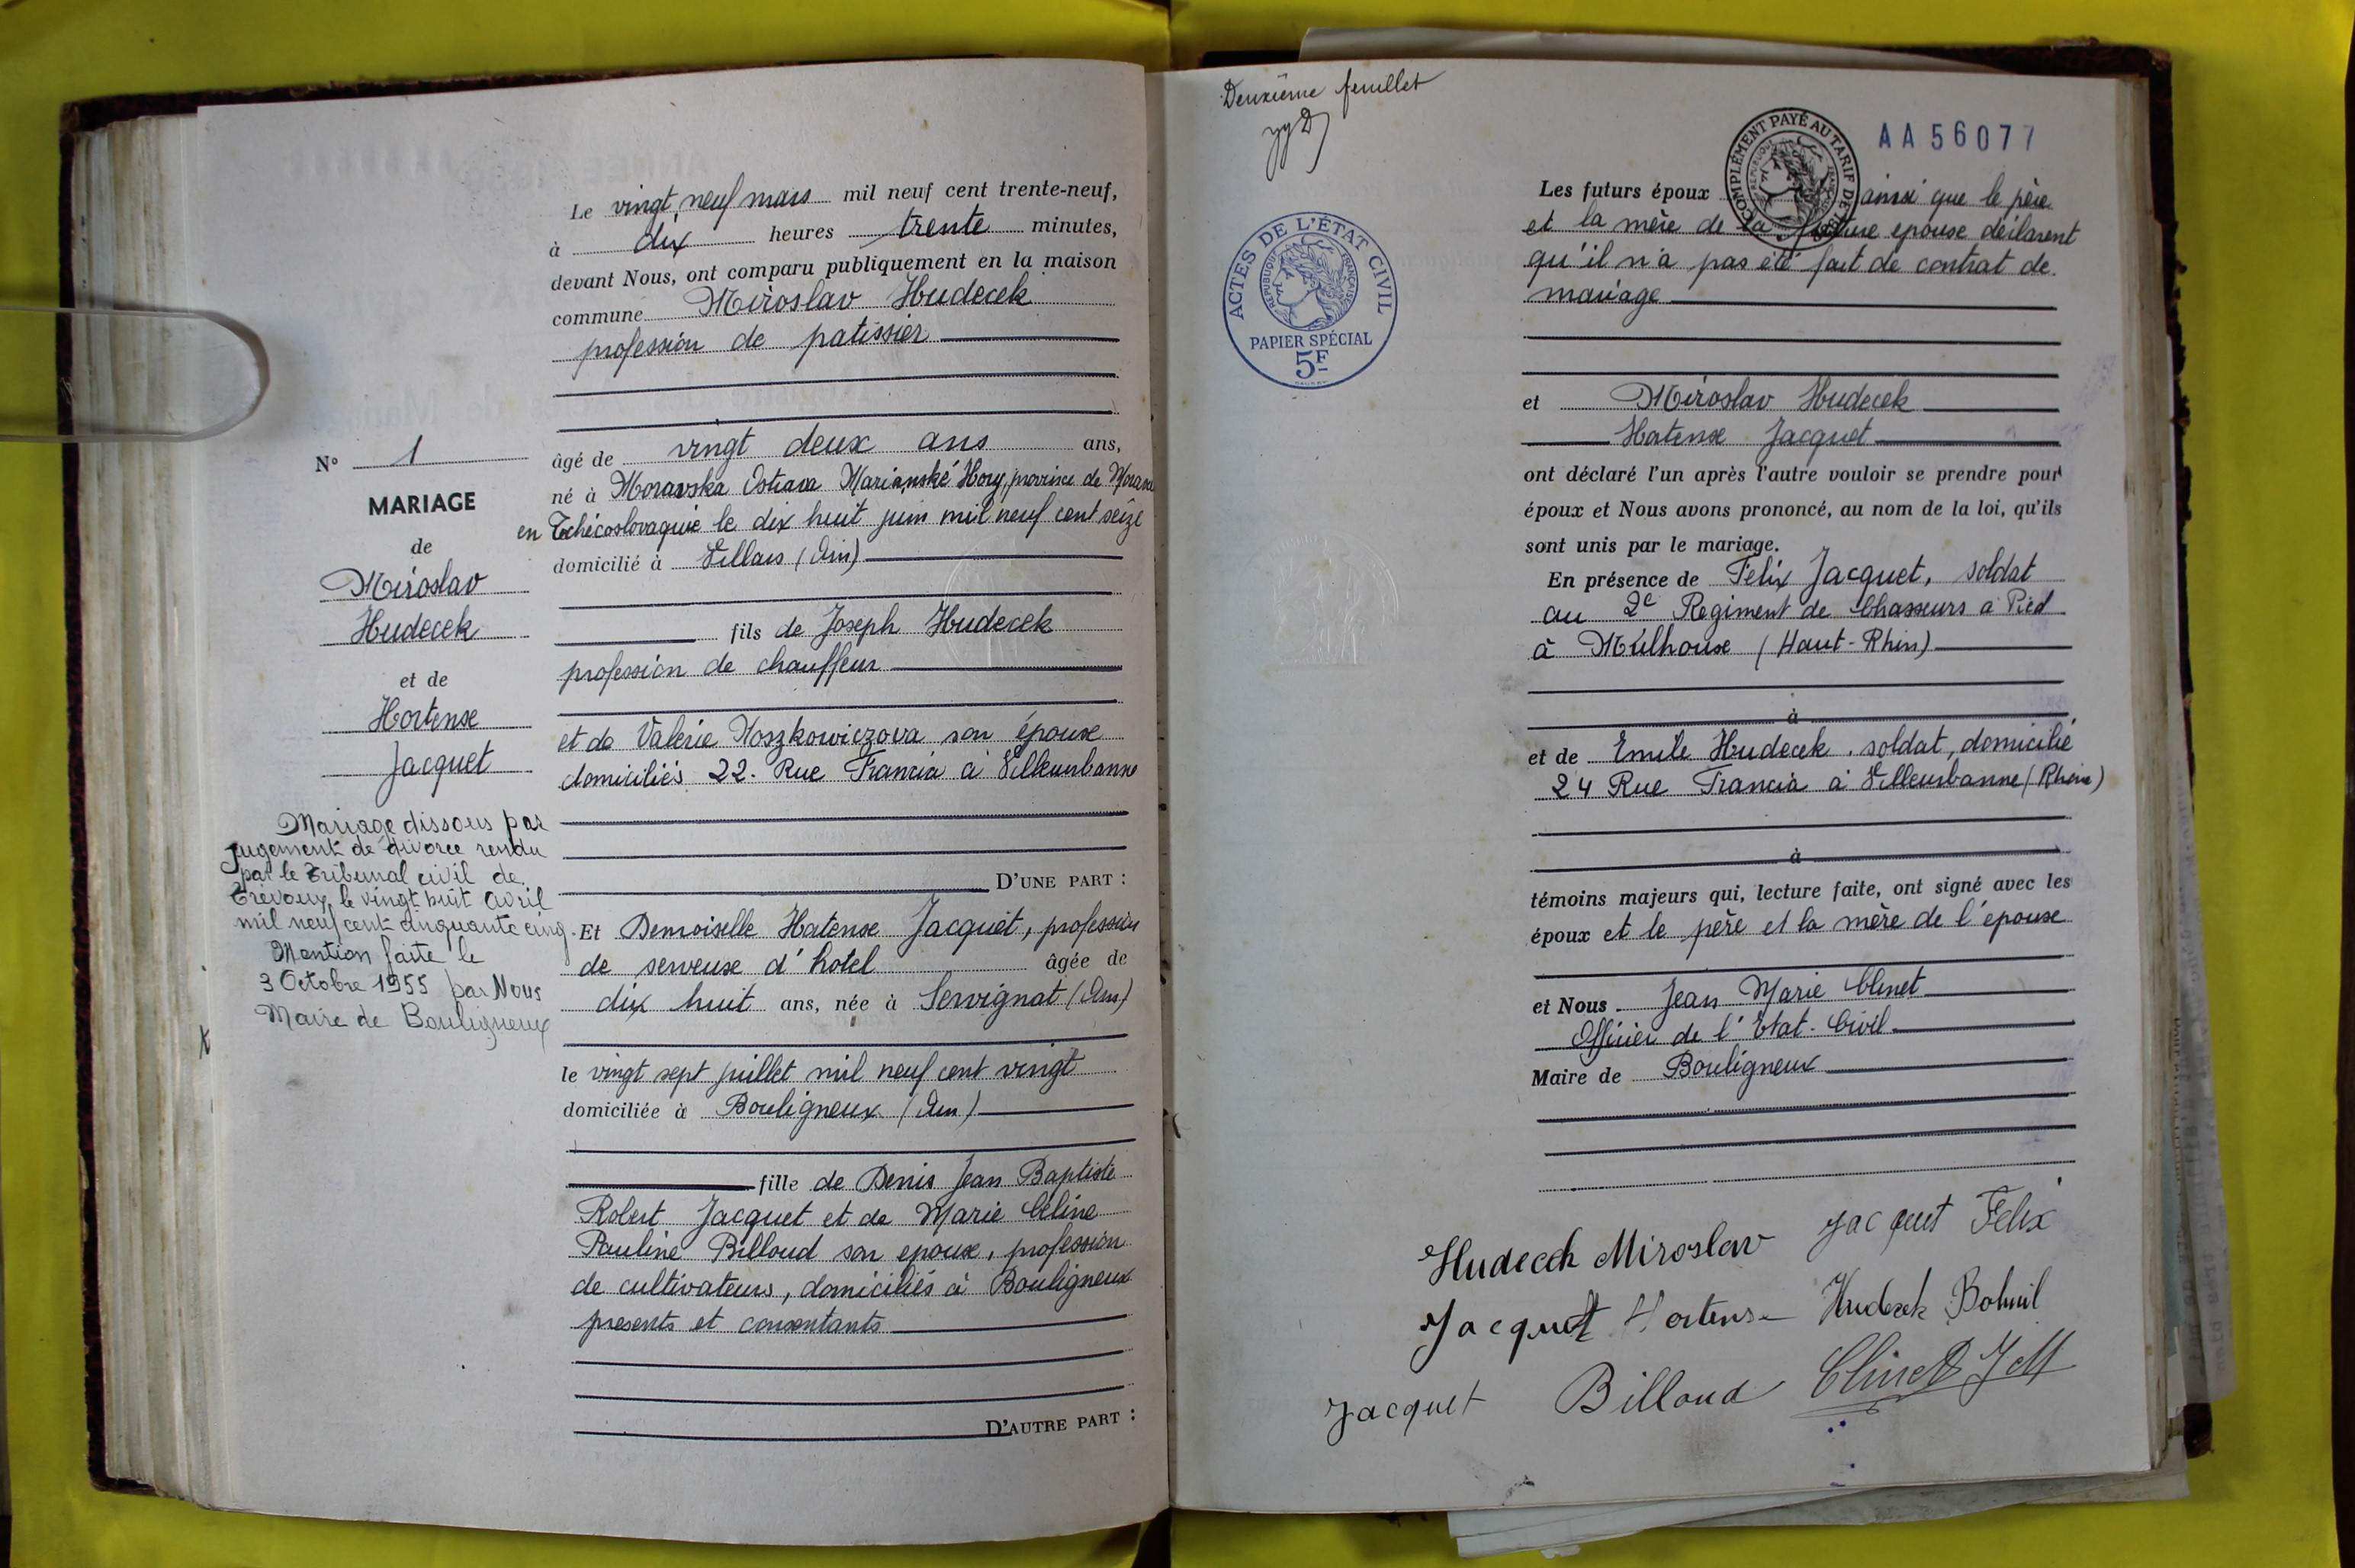 Le vingt neuf mars mil neuf cent trente-neuf,
à dix heures trente minutes,
devant Nous, ont comparu publiquement en la maison
commune Miroslav Hudecek
profession de patissier
N° 1
MARIAGE
de
Miroslav
Hudecek
et de
Hortense
Jacquet
Mariage dissous par
Jugement de divorce rendu
par le Tribunal civil de
Trévoux le vingt huit Avril
mil neuf cent cinquante cinq.
Mention faite le
3 Octobre 1955 par Nous
Maire de Bouligneux
âgé de vingt deux ans ans,
né à Moravska Ostrava Marianské Hory, province de
en Tchécoslovaquie le dix huit juin mil neuf cent seize
domicilié à Villars (Ain)
fils de Joseph Hudecek
profession de chauffeur
et de Valérie Moszkowiczova son épouse
domiciliés 22. Rue Francia à Villeurbanne
D'UNE PART :
Et Demoiselle Hortense Jacquet, profession
de serveuse d'hotel âgée de
dix huit ans, née à Servignat (Ain)
le vingt sept juillet mil neuf cent vingt
domiciliée à Bouligneux (Ain)
fille de Denis Jean Baptiste
Robert Jacquet et de Marie Céline
Pauline Billoud son epouse, profession
de cultivateurs, domiciliés à Bouligneux
presents et consentants
D'AUTRE PART :
Deuxième feuillet
AA56077
COMPLÉMENT PAYÉ AU TARIF DE
ACTES DE L'ÉTAT CIVIL
RÉPUBLIQUE FRANÇAISE
PAPIER SPÉCIAL
5F
Les futurs époux ainsi que le père
et la mère de la future epouse déclarent
qu'il n'a pas été fait de contrat de
mariage
et Miroslav Hudecek
Hortense Jacquet
ont déclaré l'un après l'autre vouloir se prendre pour
époux et Nous avons prononcé, au nom de la loi, qu'ils
sont unis par le mariage.
En présence de Félix Jacquet, soldat
au 2e Regiment de Chasseurs à Pied
à Mulhouse (Haut-Rhin)
à
et de Emile Hudecek, soldat, domicilié
24 Rue Francia à Villeurbanne (Rhône)
à
témoins majeurs qui, lecture faite, ont signé avec les
époux et le père et la mère de l'epouse
et Nous Jean Marie Clinet
Officier de l'Etat-Civil
Maire de Bouligneux
Hudecek Miroslav Jacquet Felix
Jacquet Hortense Hudecek Bohmil
Jacquet Billoud Clinet JM